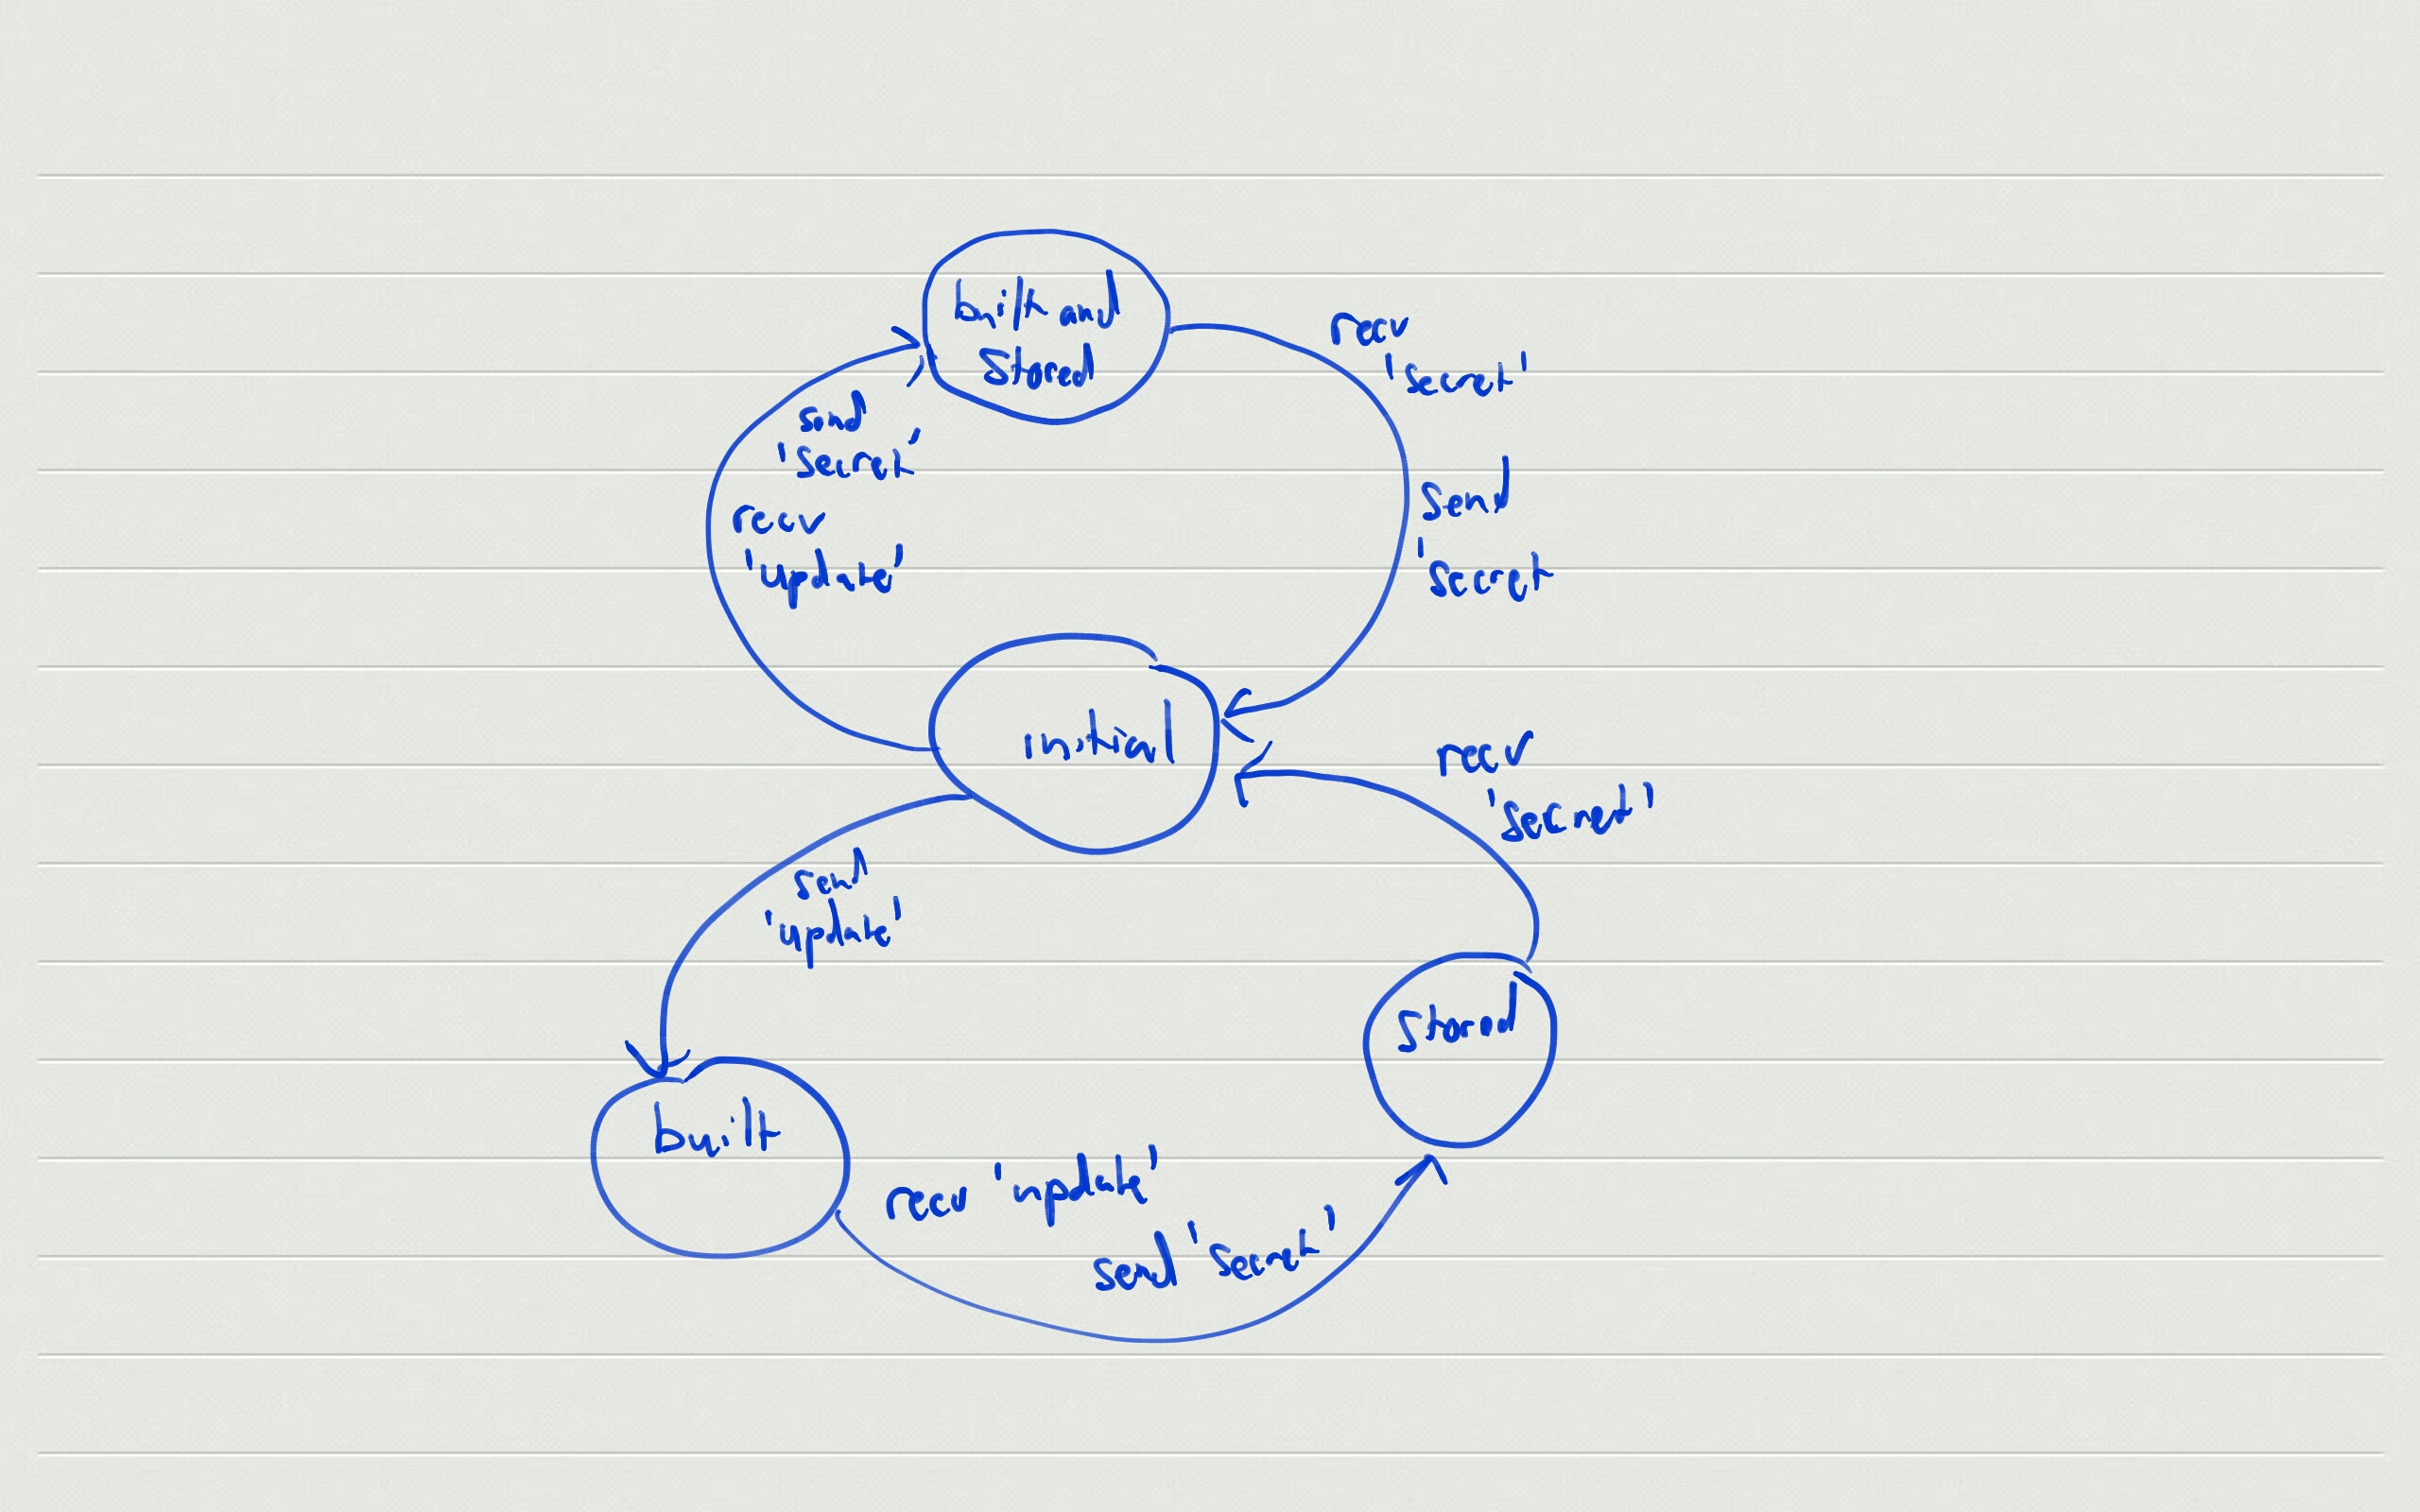 built and
Stored
recv
'secret'
send
'Secret'
recv
'update'
send
'secret
initial
recv
'secret'
send
'update'
Stored
built
recv 'update'
send 'secret'